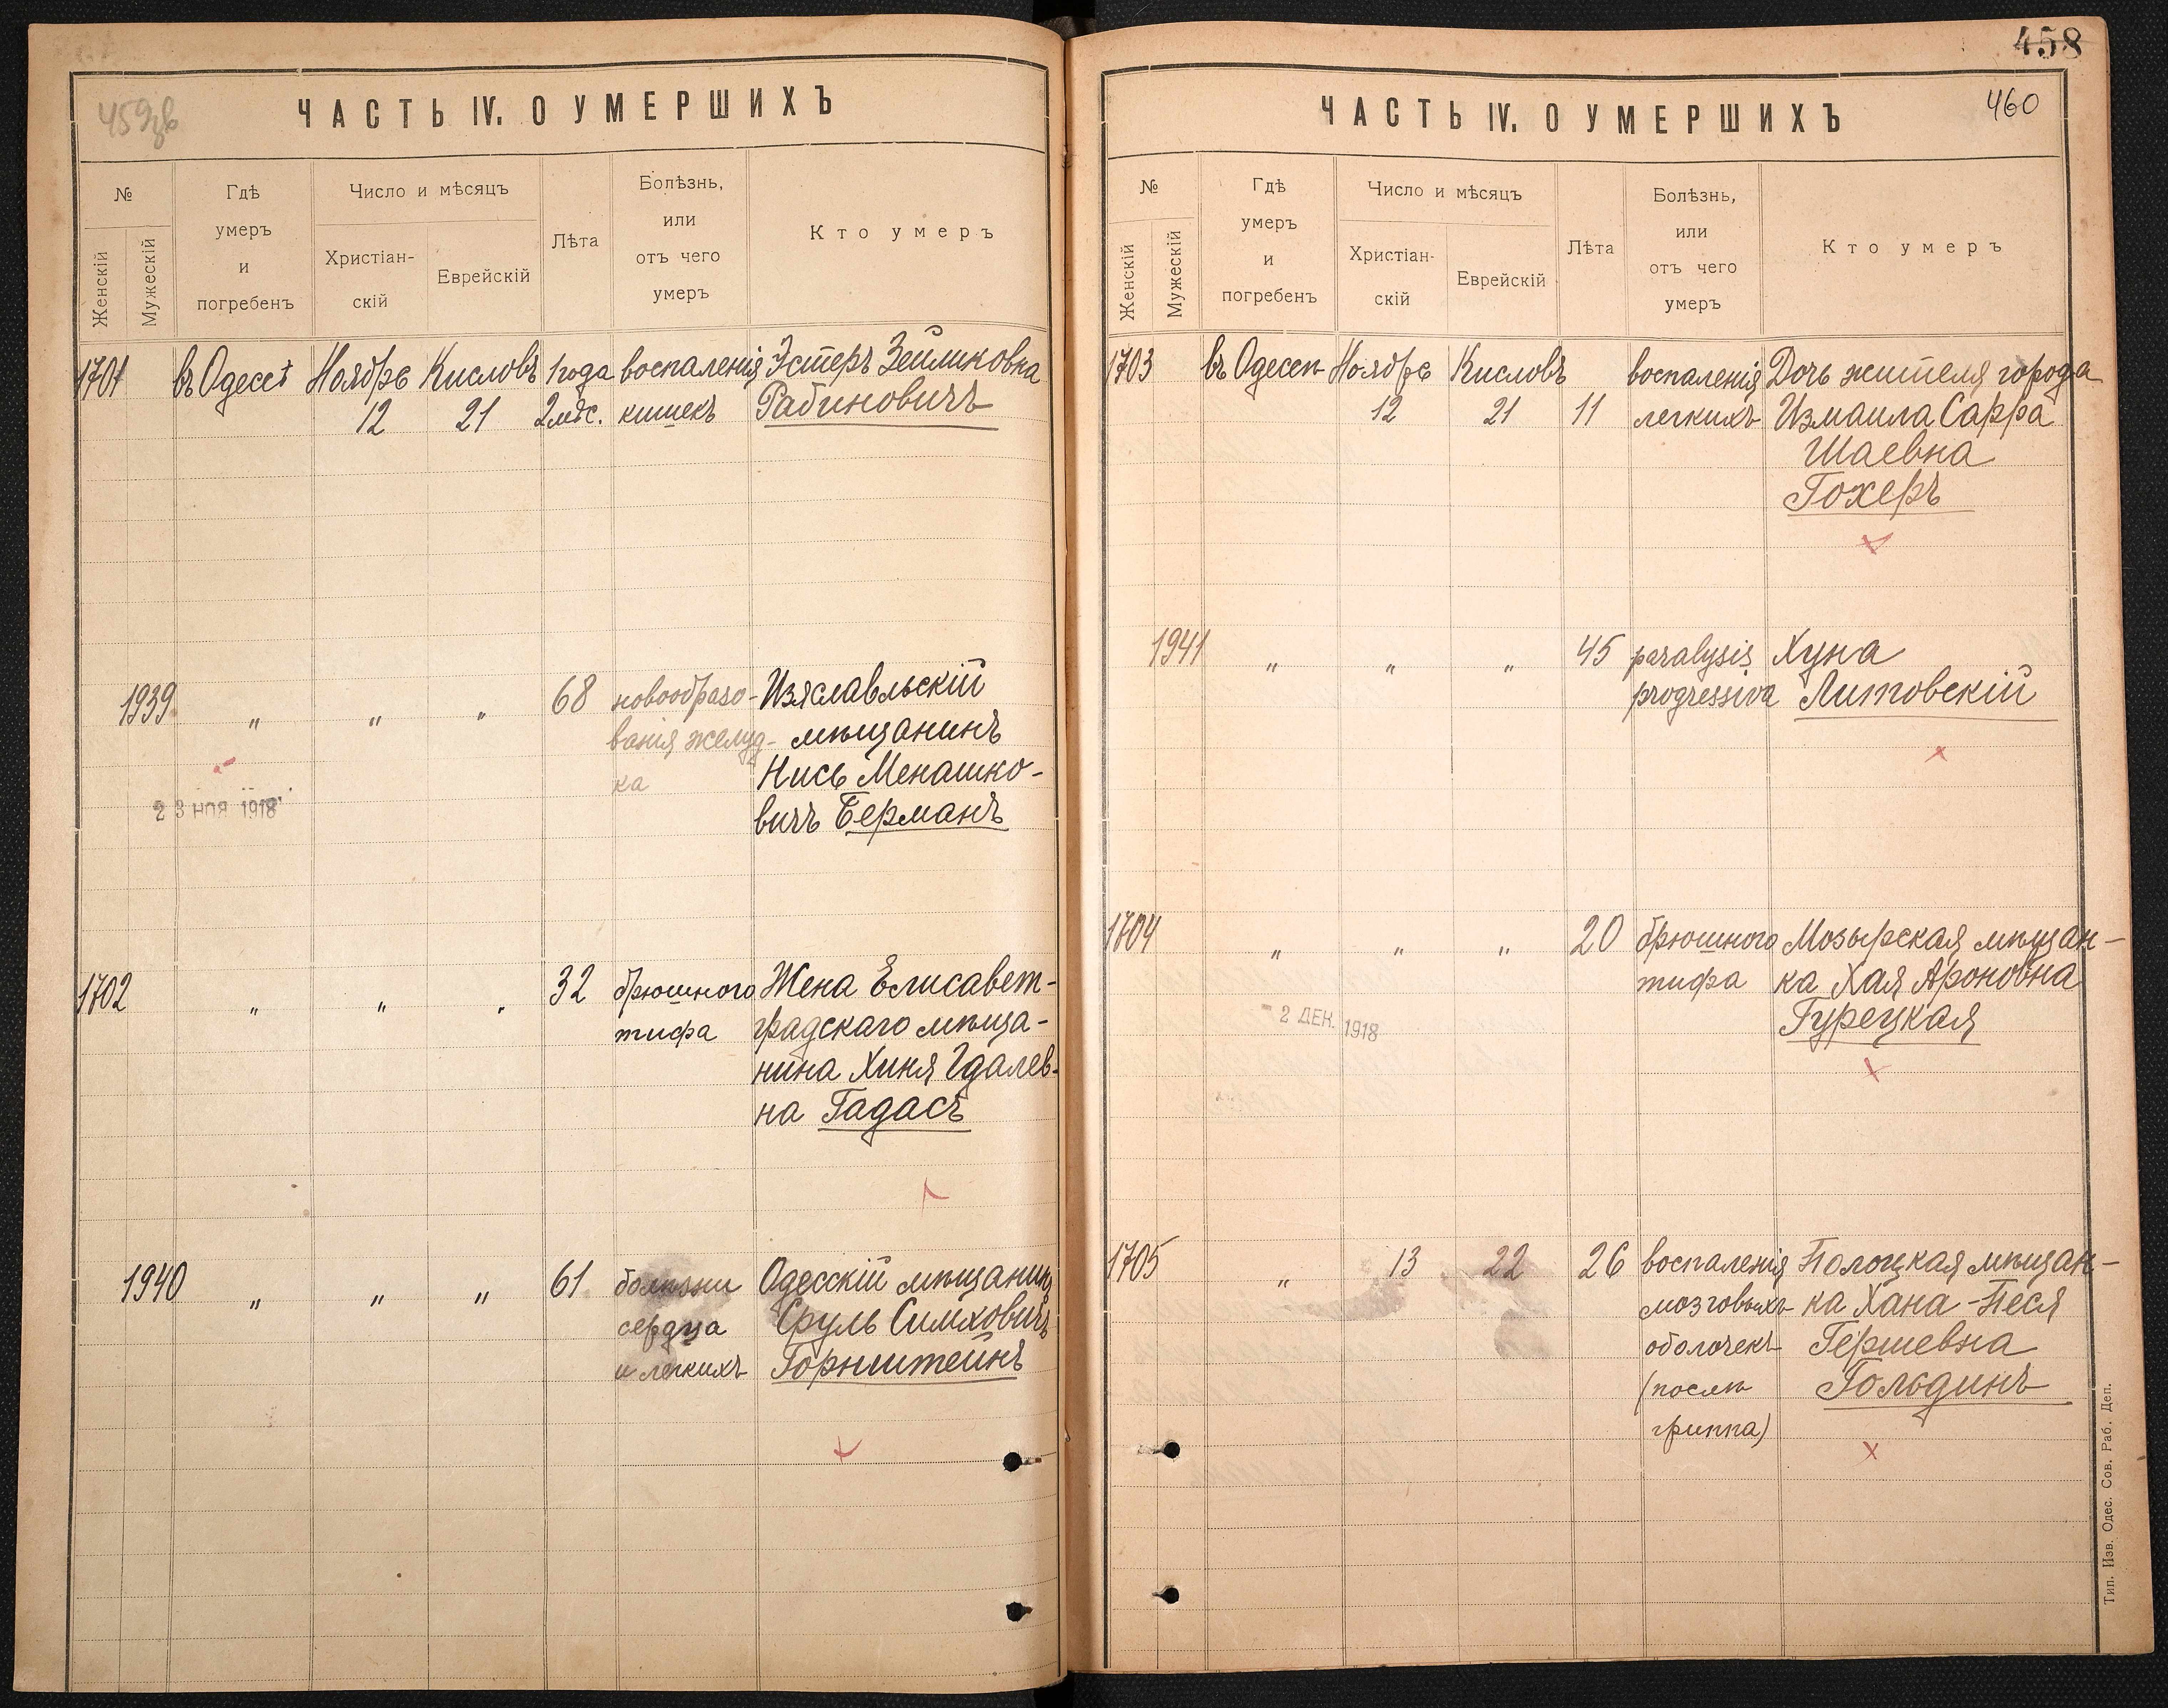 459зв
ЧАСТЬ IV. О УМЕРШИХЪ
№
Женскій
Мужескій
Гдѣ
умеръ
и
погребенъ
Число и мѣсяцъ
Христіан-
скій
Еврейскій
Лѣта
Болѣзнь,
или
отъ чего
умеръ
Кто умеръ
1701 въ Одессѣ Ноябрь Кисловъ 1 года воспаленія Эстеръ Зейликовна
12 21 2 мѣс. кишекъ Рабиновичъ
1939 „ „ „ 68 новообразо- Изяславльскій
ванія желуд- мѣщанинъ
ка Нись Менашко-
23 НОЯ 1918
вичъ Берманъ
1702 „ „ „ 32 брюшного Жена Елисавет-
тифа градскаго мѣща-
нина Хиня Гдалев-
на Гадасъ
1940 „ „ „ 61 болѣзни Одесскій мѣщанинъ
сердца Сруль Симховичъ
и легкихъ Горнштейнъ
458
460
ЧАСТЬ IV. О УМЕРШИХЪ
№
Женскій
Мужескій
Гдѣ
умеръ
и
погребенъ
Число и мѣсяцъ
Христіан-
скій
Еврейскій
Лѣта
Болѣзнь,
или
отъ чего
умеръ
Кто умеръ
1703 въ Одессѣ Ноябрь Кисловъ воспаленія Дочь жителя города
12 21 11 легкихъ Измаила Сарра
Шаевна
Гохеръ
1941 „ „ „ 45 paralysis Хуна
progressiva Литовскій
1704 „ „ „ 20 брюшного Мозырская мѣщан-
тифа ка Хая Ароновна
- 2 ДЕК. 1918
Гурецкая
1705 „ 13 22 26 воспаленія Полоцкая мѣщан-
мозговыхъ ка Хана-Песя
оболочекъ Гершевна
(послѣ Гольдинъ
гриппа)
Тип. Изв. Одес. Сов. Раб. Деп.